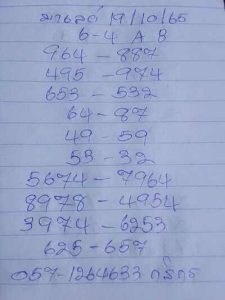 19/10/65
6-4 A B
964 - 887
495 - 974
653 - 532
64 - 87
49 - 59
53 - 32
5674 - 7964
8978 - 4954
3974 - 6253
625 - 657
057-1264633